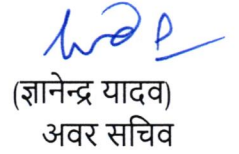 (ज्ञानेन्द्र यादव)
अवर सचिव